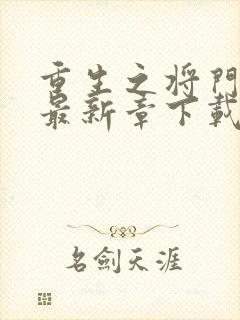 重生之将門
最新章下載
名劍天涯